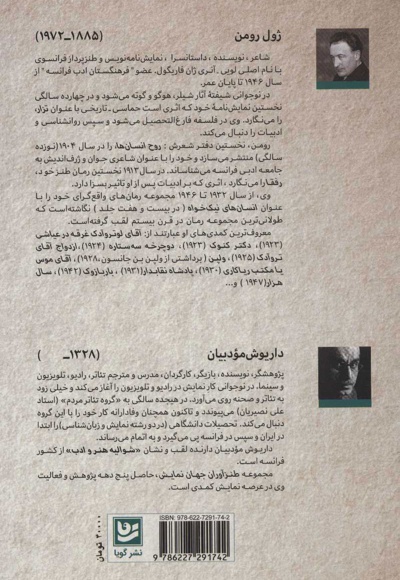 ژول رومن (۱۸۸۵ــ۱۹۷۲)
شاعر، نویسنده، داستانسرا، نمایش‌نامه‌نویس و طنزپرداز فرانسوی
با نام اصلی لویی ـ آنری ژان فاریگول. عضو "فرهنگستان ادب فرانسه" از
سال ۱۹۴۶ تا پایان عمر.
در نوجوانی شیفتهٔ آثار شیلر، هوگو و گوته می‌شود و در چهارده سالگی
نخستین نمایش‌نامهٔ خود که اثری است حماسی ـ تاریخی با عنوان تزار،
را می‌نگارد. وی در فلسفه فارغ‌التحصیل می‌شود و سپس روانشناسی و
ادبیات را دنبال می‌کند.
رومن، نخستین دفتر شعرش: روح انسان‌ها، را در سال ۱۹۰۴ (نوزده
سالگی) منتشر می‌سازد و خود را با عنوان شاعری جوان و ژرف‌اندیش به
جامعه ادبی فرانسه می‌شناساند. در سال ۱۹۱۳ نخستین رمان طنز خود،
رفقا را می‌نگارد، اثری که بر ادبیات پس از او تأثیر بسزا دارد.
وی، از سال ۱۹۳۲ تا ۱۹۴۶ مجموعه رمان‌های واقع‌گرای خود را با
عنوان انسان‌های نیک‌خواه (در بیست و هفت جلد) نگاشته‌است که
طولانی‌ترین مجموعه رمان در قرن بیستم لقب گرفته‌است.
معروف‌ترین کمدی‌های او عبارتند از: آقای لوتروادک غرقه در عیاشی
(۱۹۲۳)، دکتر کنوک (۱۹۲۳)، دوچرخه سه‌ستاره (۱۹۲۴)، ازدواج آقای
تروادک (۱۹۲۵)، ولپن (برداشتی از ولپن بن جانسون، ۱۹۲۸)، آقای موس
یا مکتب ریاکاری (۱۹۳۰)، پادشاه نقابدار (۱۹۳۱)، باربازوک (۱۹۴۲)، سال
هزار (۱۹۴۷) و...
داریوش مؤدبیان (۱۳۲۸ــ )
پژوهشگر، نویسنده، بازیگر، کارگردان، مدرس و مترجم تئاتر، رادیو، تلویزیون
و سینما. در نوجوانی کار نمایش در رادیو و تلویزیون را آغاز می‌کند و خیلی زود
به تئاتر و صحنه روی می‌آورد. در هیجده سالگی به «گروه تئاتر مردم» (استاد
علی نصیریان) می‌پیوندد و تاکنون همچنان وفادارانه کار خود را با این گروه
دنبال می‌کند. تحصیلات دانشگاهی (در دو رشته نمایش و زبان‌شناسی) را ابتدا
در ایران و سپس در فرانسه پی می‌گیرد و به اتمام می‌رساند.
داریوش مؤدبیان دارنده لقب و نشان «شوالیه هنر و ادب» از کشور
فرانسه است.
مجموعه طنزآوران جهان نمایش، حاصل پنج دهه پژوهش و فعالیت
وی در عرصه نمایش کمدی است.
۴۰۰۰۰ تومان
نشر گویا
ISBN: 978-622-7291-74-2
9 786227 291742